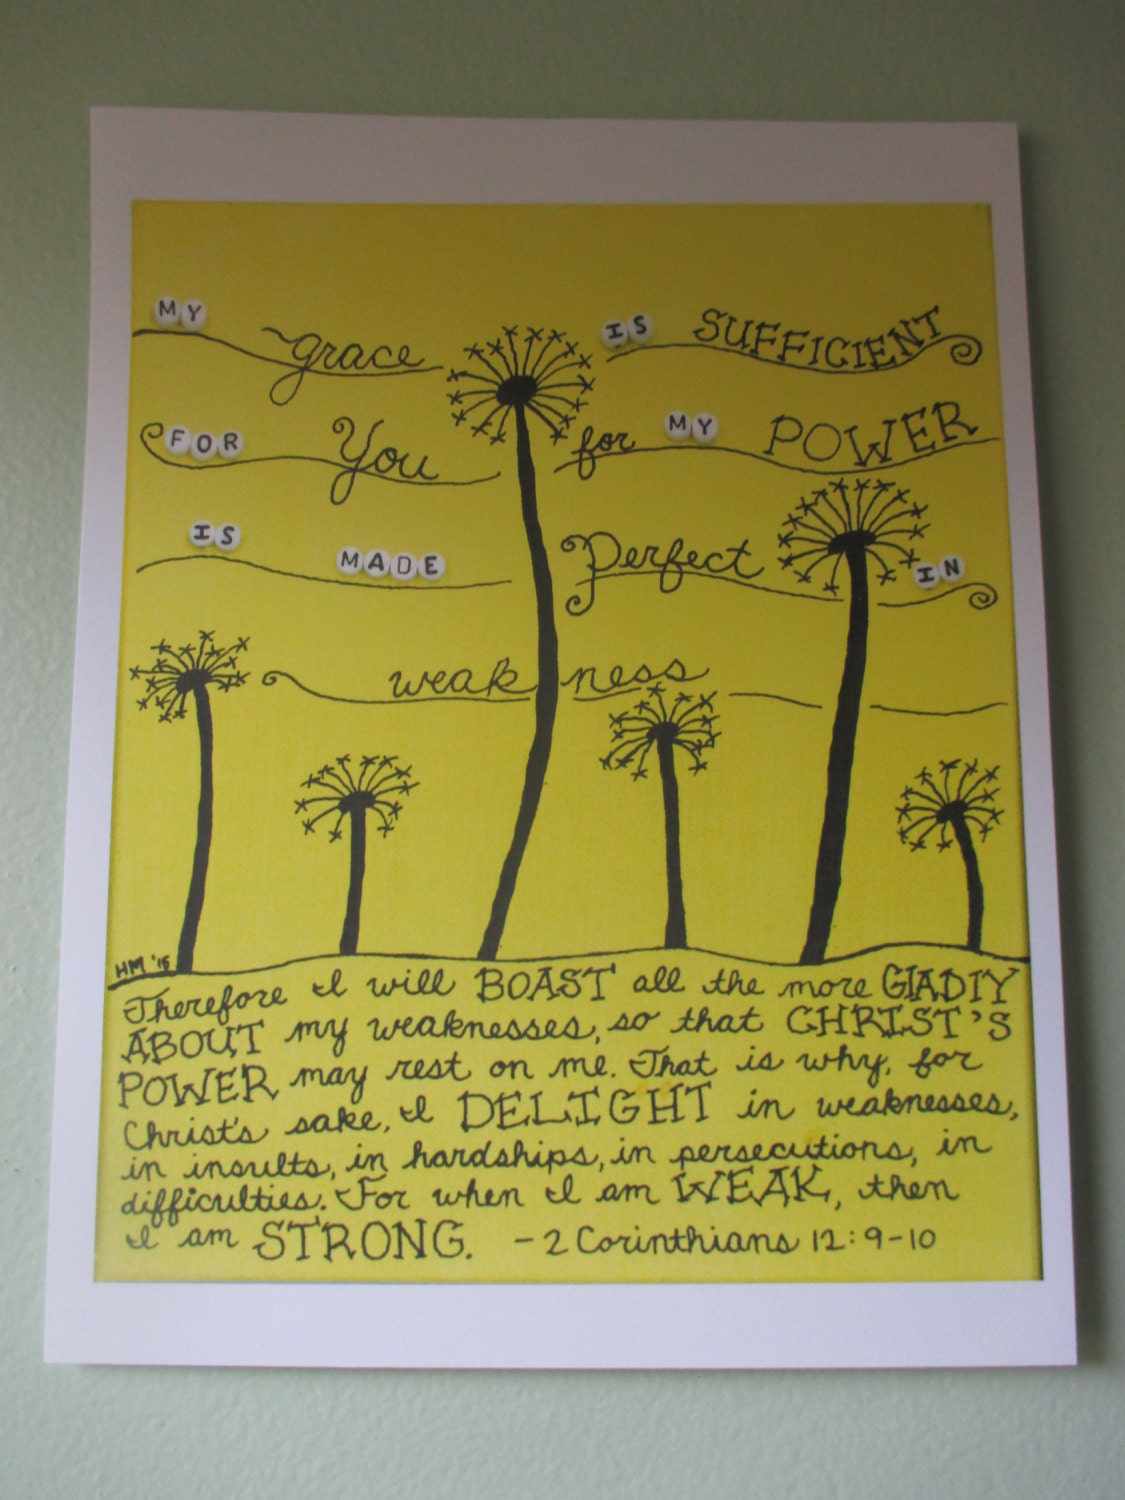 MY grace IS SUFFICIENT
FOR You for MY POWER
IS MADE Perfect IN
weakness
HM '15
Therefore I will BOAST all the more GLADLY
ABOUT my weaknesses, so that CHRIST'S
POWER may rest on me. That is why, for
Christ's sake, I DELIGHT in weaknesses,
in insults, in hardships, in persecutions, in
difficulties. For when I am WEAK, then
I am STRONG. - 2 Corinthians 12:9-10